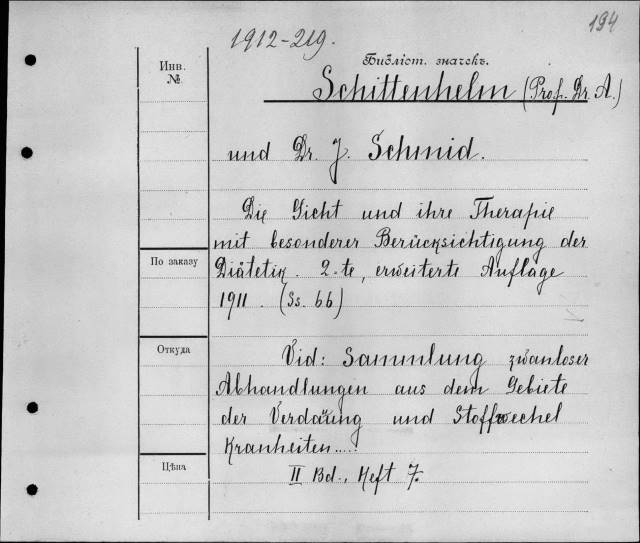 194
1912-219.
Инв.
№
Библіот. значекъ.
Schittenhelm (Prof. Dr. A.)
und Dr. J. Schmid.
Die Gicht und ihre Therapie
mit besonderer Berücksichtigung der
По заказу
Diätetik. 2-te, erweiterte Auflage
1911. (Ss. 66)
Откуда
Vid: Sammlung zwanloser
Abhandlungen aus dem Gebiete
der Verdaüng und Stoffwechel
Kranheiten.....
Цѣна
II Bd., Heft 7.